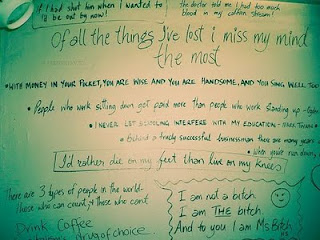 If I had shot him when I wanted to
I'd be out by now!
the doctor told me I had too much
blood in my caffein stream!
Of all the things I've lost i miss my mind
the most
• WITH MONEY IN YOUR POCKET, YOU ARE WISE AND YOU ARE HANDSOME, AND YOU SING WELL TOO
• People who work sitting down get paid more than people who work standing up -
• I NEVER LET SCHOOLING INTERFERE WITH MY EDUCATION - MARK TWAIN
• Behind a truly successful businessman there are many years
• When you're run down,
I'd rather die on my feet than live on my knees
There are 3 types of people in the world-
those who can count & those who cant
Drink Coffee
drug of choice
I am not a bitch
I am THE bitch
And to you I am Ms Bitch